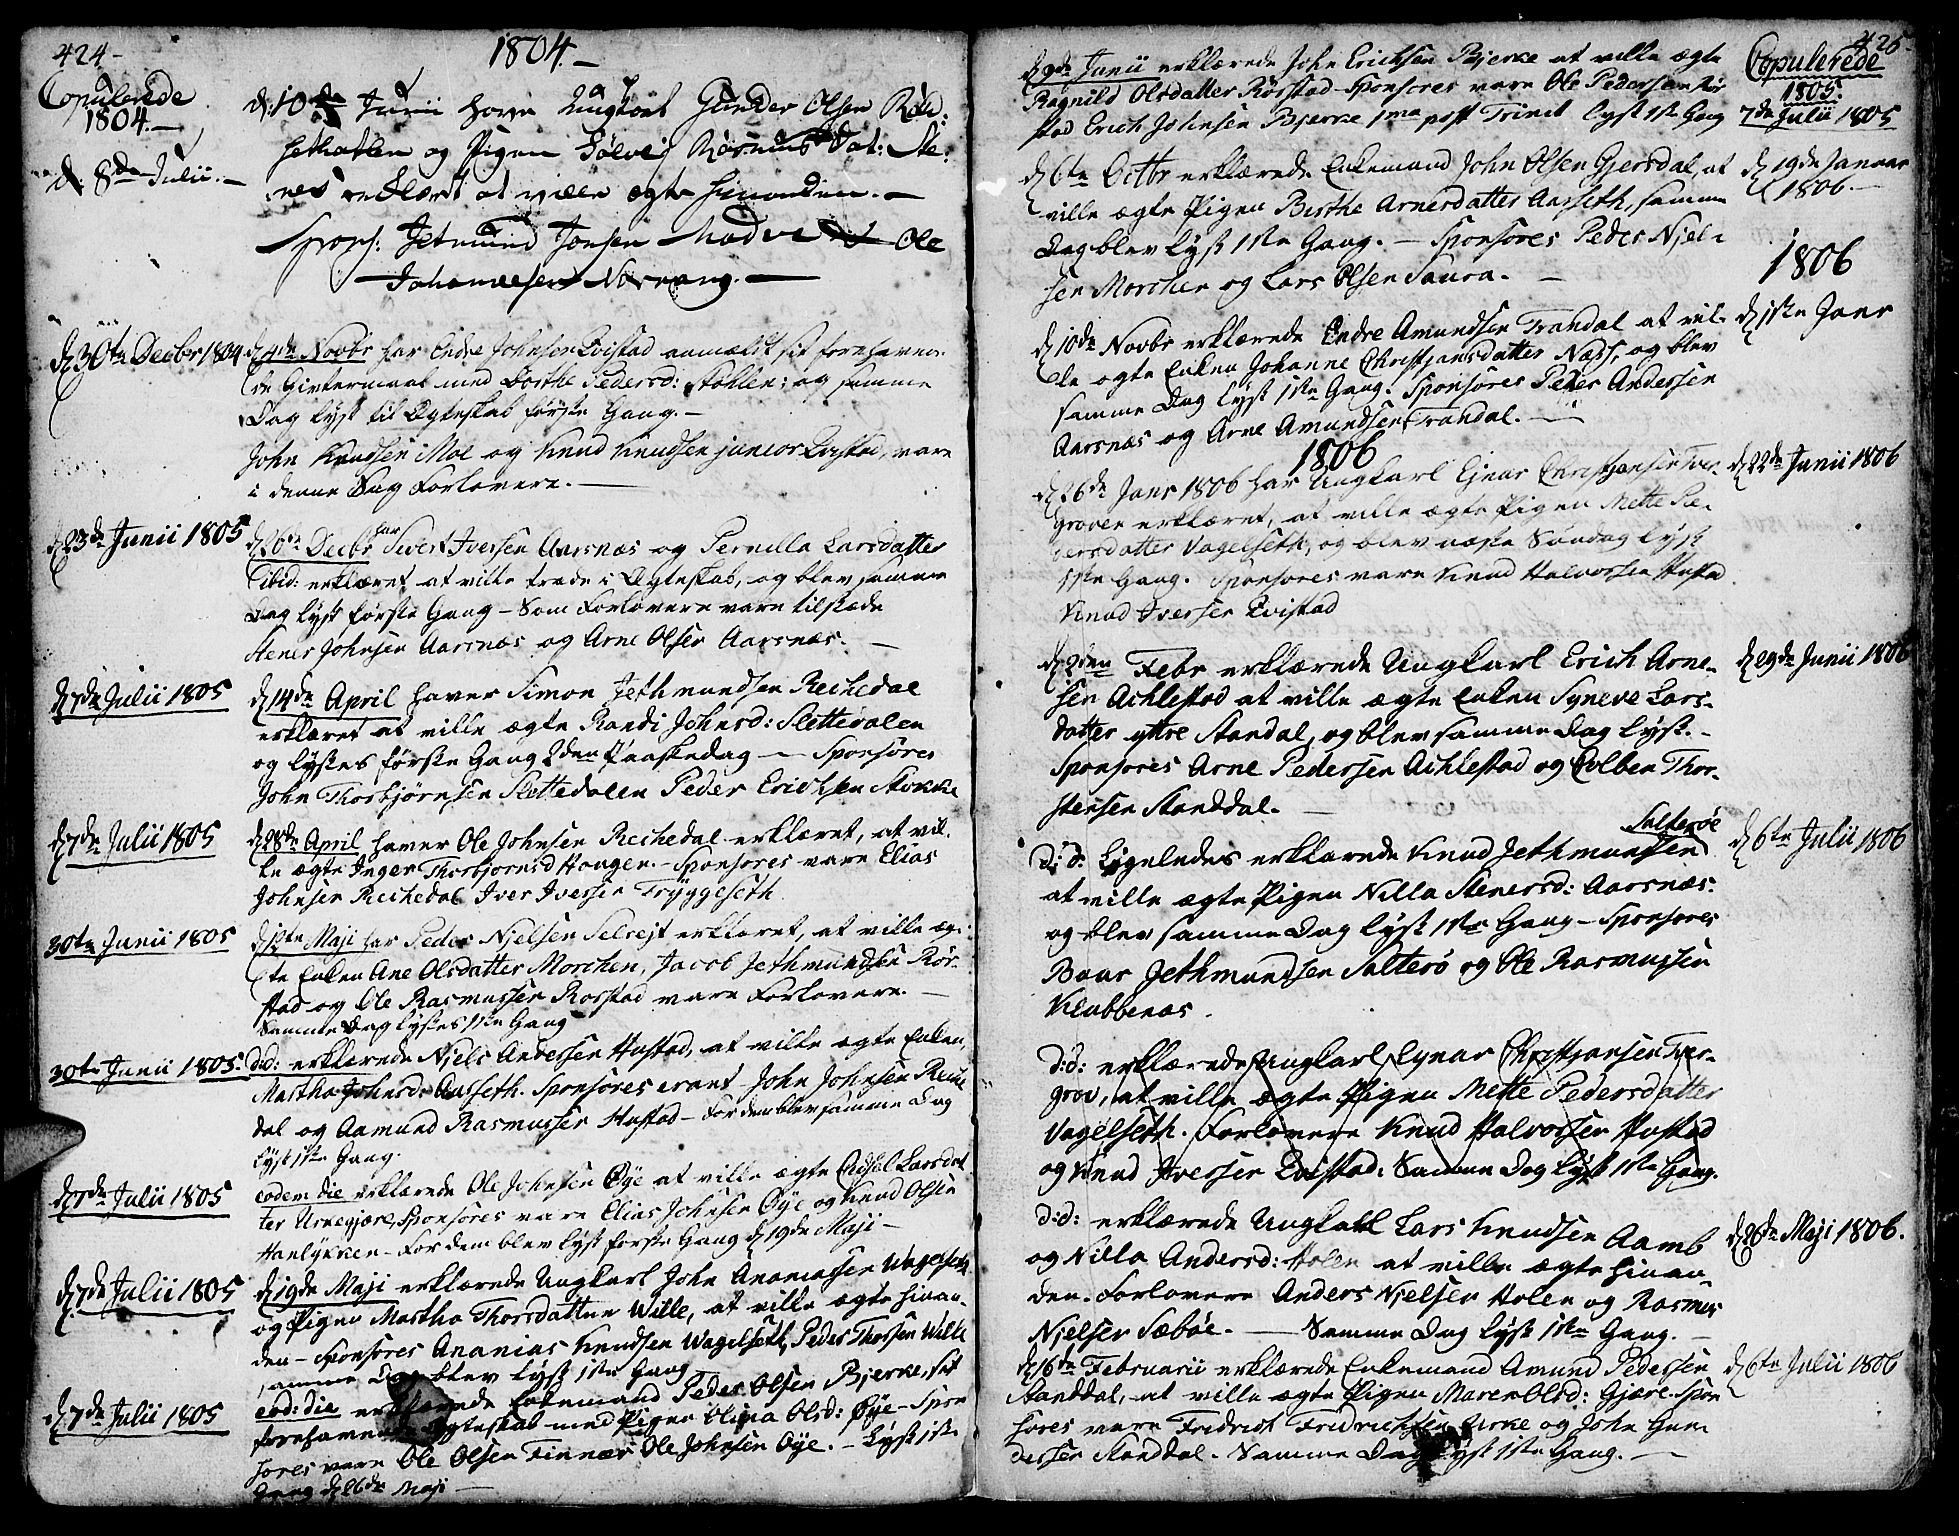 424-
1804.-
Copulerede
1804.-
d. 8de Julii.-
d: 10de Junii have Ungkarl Gunder Olsen Rise-
og Pigen Sølvei Rasmusdat: Ste-
nes erklært at ville ægte hinanden.-
Spons. Jetmund Jonsen Ole
Johannesen Norvang.-
d 30te Decbr 1804
d 4de Novbr har Endre Johnsen Qvistad anmældt sit forehaven-
de Givtermaal med Dorthe Pedersd: Stohlen; og samme
Dag lyst til Ægteskab første Gang.-
John Knudsen Moe og Knud Knudsen junior Qvistad, vare
i denne Sag Forlovere.-
d 23de Junii 1805
d 26de Decbr har Siver Iversen Aarsnæs og Pernilla Larsdatter
ibid: erklæret at ville træde i Ægteskab, og blev samme
Dag lyst første Gang - Som Forlovere vare tilstæde
Stener Johnsen Aarsnæs og Arne Olsen Aarsnæs.-
d 7de Julii 1805
d 14de April haver Simon Jethmundsen Rechedal
erklæret at ville ægte Randi Johnsd: Slettedalen
og lystes første Gang 2den Paaskedag - Sponsores
John Thorbjørnsen Slettedalen Peder Erichsen Stokke
d 7de Julii 1805
d 28de April haver Ole Johnsen Rechedal erklæret, at vil-
le ægte Inger Thorbjørnsd Hougen.- Sponsores vare Elias
Johnsen Rechedal Iver Iversen Tryggeseth
30te Junii 1805
d 12te Maji har Peder Njelsen Selvejt erklæret, at ville æg-
te Enken Ane Olsdatter Morchen, Jacob Jethmundsen Rör-
stad og Ole Rasmussen Rorstad vare Forlovere.-
Samme Dag lystes 1ste Gang
30te Junii 1805.
d:d: erklærede Njels Andersen Hustad, at ville ægte Enken,
Martha Johnsd: Aasseth. Sponsores erant John Johnsen Reche
dal og Aamund Rasmussen Hustad - For dem blev samme Dag
lyst 1ste Gang.
d 7de Julii 1805
eodem die erklærede Ole Johnsen Øye at ville ægte Larsdat
ter Urkegjære, Sponsores vare Elias Johnsen Øye og Knud Olsen
Haulykken - For dem blev lyst første Gang d 19de Maji-
d 7de Julii 1805
d 19de Maji erklærede Ungkarl John Ananiassen Wagelseth
og Pigen Martha Thorsdatter Wille, at ville ægte hinan-
den - Sponsores Ananias Knudsen Wagelseth, Peder Thorsen Wille
samme Dag blev lyst 1ste Gang
d 7de Julii 1805
eod: die erklærede Enkemand Peder Olsen Bjerke, sit
forehavende Ægteskab med Pigen Olina Olsd: Øye - Spon
sores vare Ole Olsen Finnæs Ole Johnsen Øye.- Lyst 1ste
Gang d 26de Maji -
425.
Copulerede
1805.
7de Julii 1805
d 9de Junii erklærede John Erichsen Bjerke at ville ægte
Ragnild Olsdatter Rørstad - Sponsores vare Ole Pedersen Rör
stad Erich Johnsen Bjerke 1ma post Trinit lyst 1ste Gang
d 19de Januar
1806.-
d 6te Octbr erklærede Enkemand John Olsen Gjersdal, at
ville ægte Pigen Berthe Arnesdatter Aasseth, samme
Dag blev lyst 1ste Gang.- Sponsores Peder Njel-
sen Morchen og Lars Olsen Saura.-
1806
d 1ste Janr
d 10de Novbr erklærede Endre Amundsen Trandal at vil-
le ægte Enken Johanne Christjansdatter Næss, og blev
samme Dag lyst 1ste Gang. Sponsores Peder Andersen
Aarsnæs og Arne Amundsen Trandal.-
1806
d 22de Junii 1806
d 26de Janr 1806 har Ungkarl Ejnar Christjansen Tver-
groven erklæret, at ville ægte Pigen Mette Pe-
dersdatter Vagelseth, og blev næste Søndag lyst
1ste Gang. Sponsores vare Knud Halvorsen Hustad
Knud Iversen Qvistad
d 29de Junii 1806
d 2den Febr erklærede Ungkarl Erich Arne-
sen Achlestad at ville ægte Enken Syneve Lars-
datter yttre Standal, og blev samme Dag lyst.-
Sponsores Arne Pedersen Achlestad og Colben Thor-
stensen Standdal.-
d 6te Julii 1806
Salterøe
d: d: Ligeledes erklærede Knud Jethmundsen
at ville ægte Pigen Nilla Stenersd: Aarsnæs.
og blev samme Dag lyst 1ste Gang - Sponsores
Baar Jethmundsen Salterø og Ole Rasmussen
Klubbenæs.
d:d: erklærede Ungkarl Ejnar Christjansen Tver-
grov, at ville ægte Pigen Mette Pedersdatter
Vagelseth. Forlovere Knud Halvorsen Hustad
og Knud Iversen Qvistad. Samme Dag lyst 1ste Gang.
d 26de Maji 1806.
d:d: erklærede Ungkarl Lars Knudsen Aamb
og Nilla Andersd: Holen at ville ægte hinan-
den. Forlovere Anders Njelsen Holen og Rasmus
Njelsen Sæbøe.- Samme Dag lyst 1ste Gang.-
d 6te Julii 1806
d 16de Februarii erklærede Enkemand Amund Pedersen
Standdal, at ville ægte Pigen Maren Olsd: Gjære. Spon
sores vare Fredrich Fredrichsen Urke og John Gun-
dersen Standdal. Samme Dag lyst 1ste Gang.-